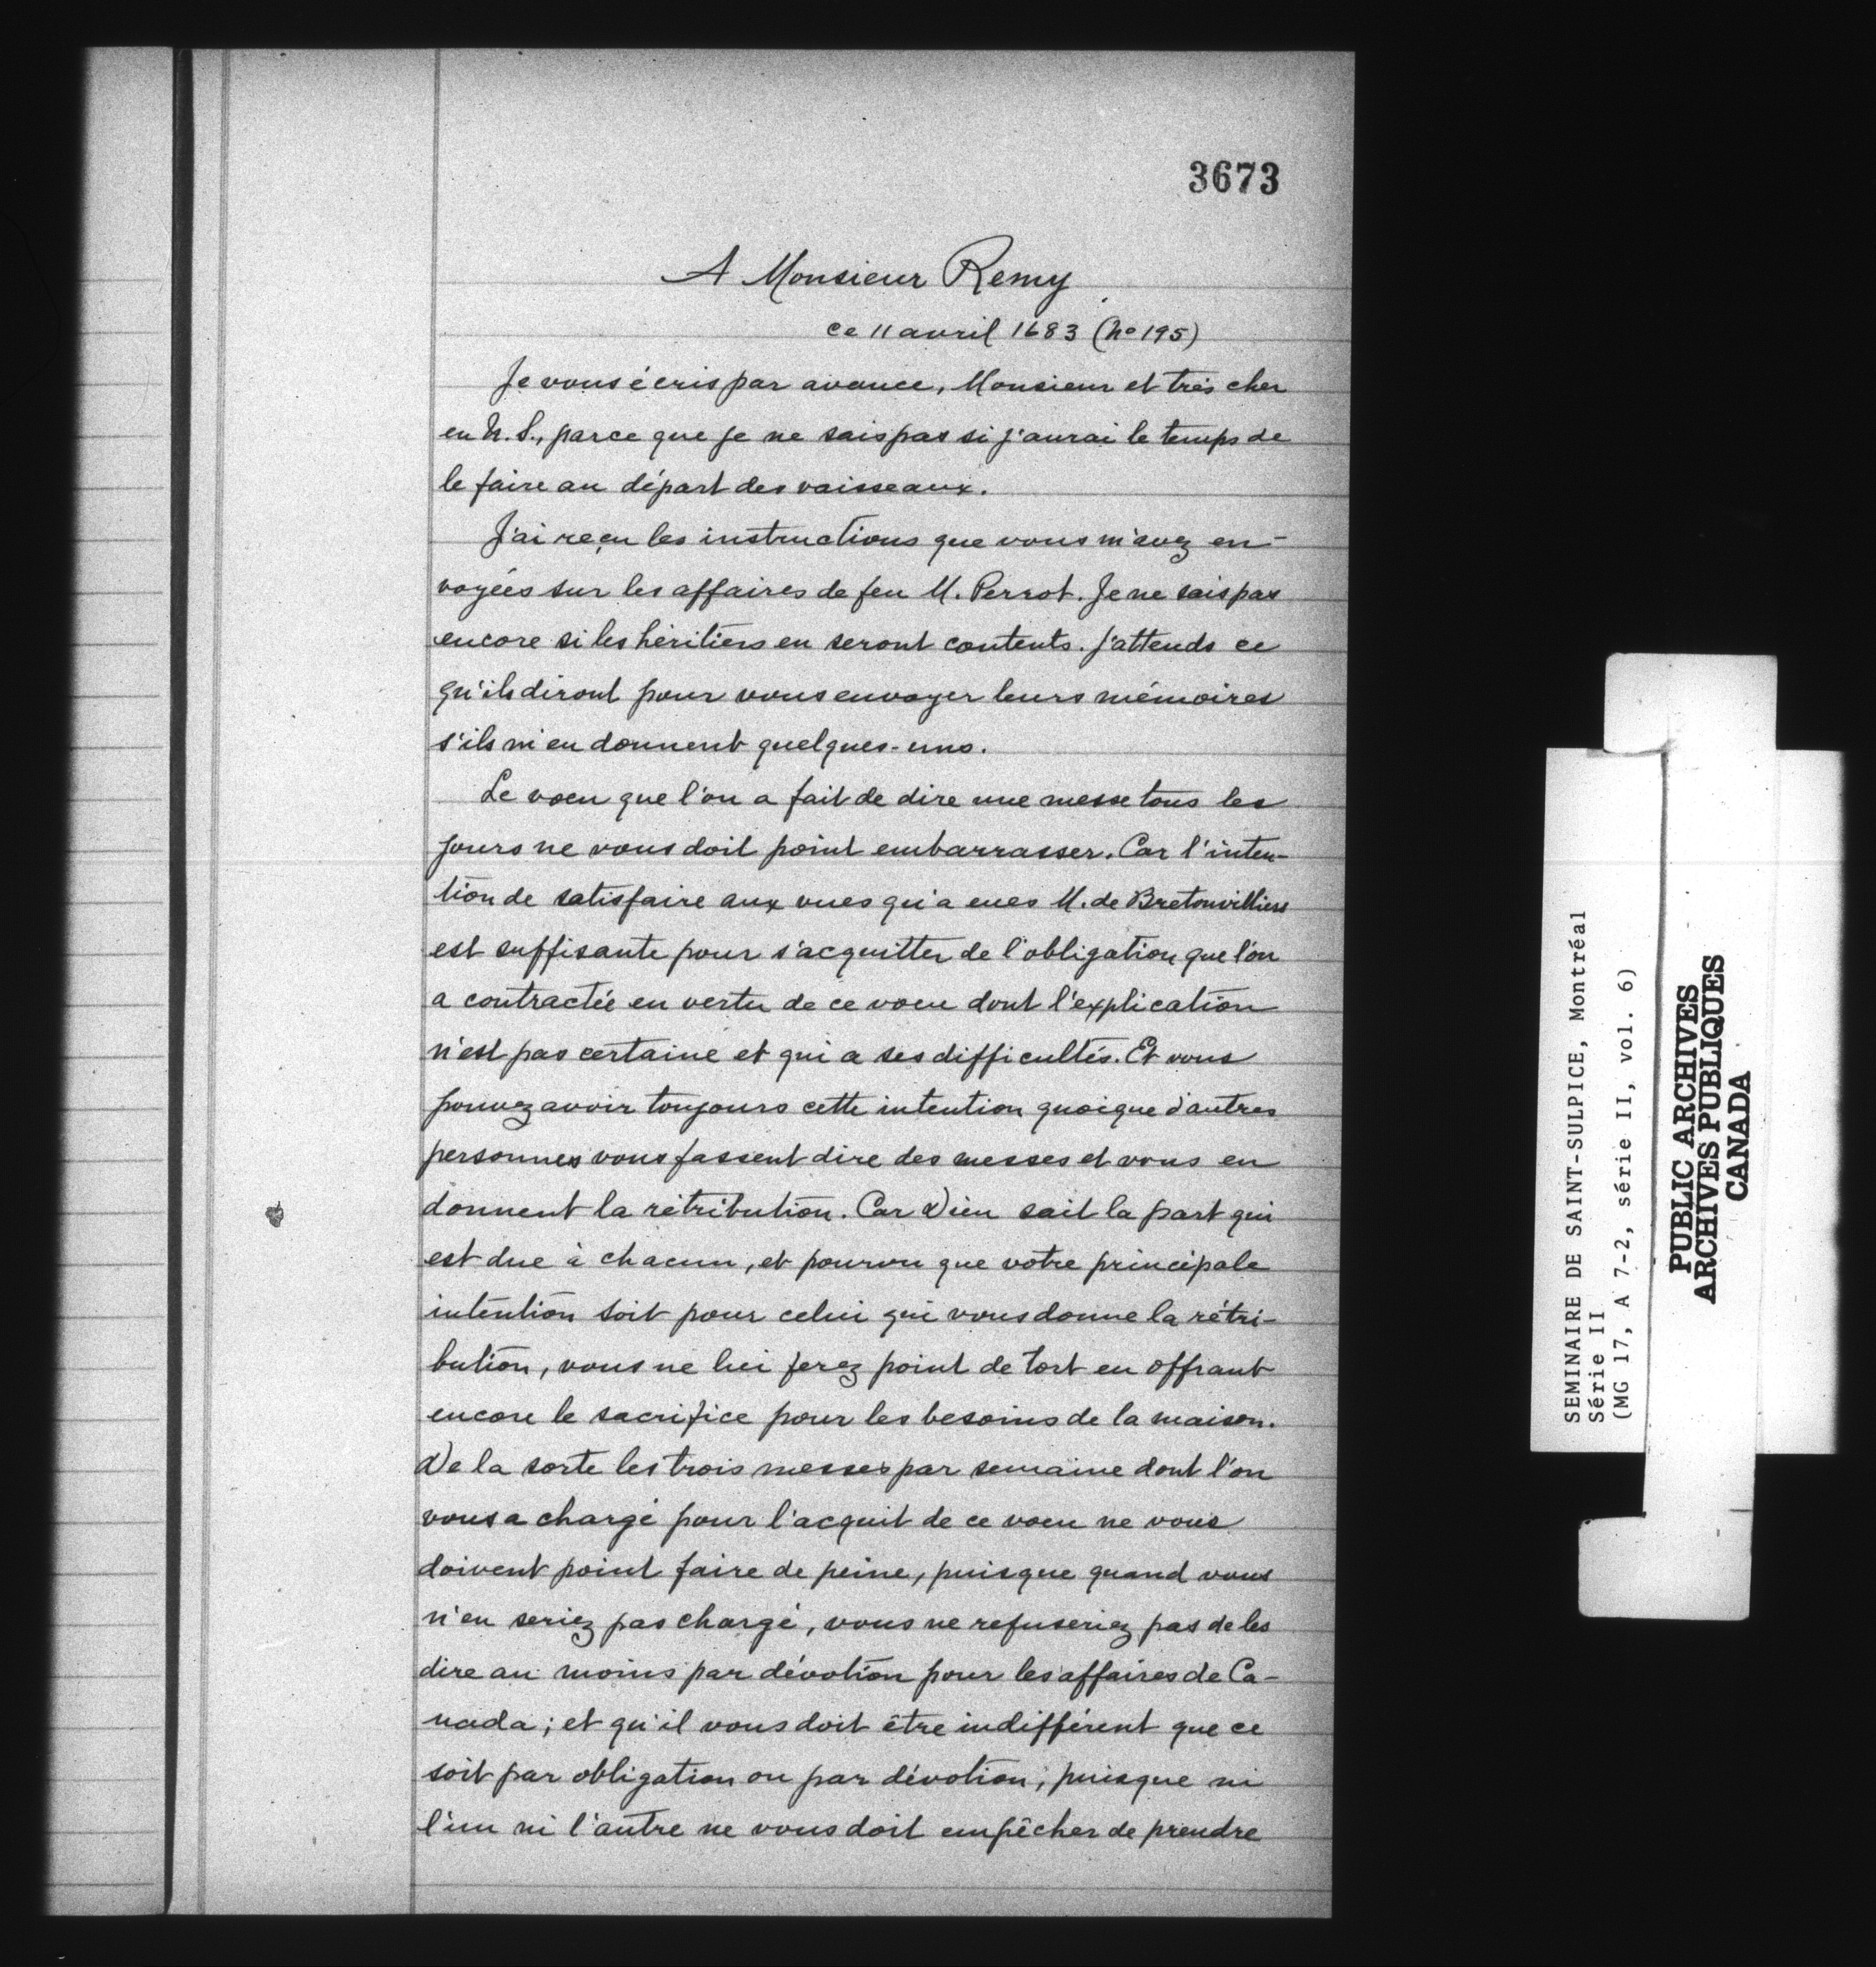 3673
A Monsieur Remy
ce 11 avril 1683 (No 195)
Je vous écris par avance, Monsieur et très cher
en N. S., parce que je ne sais pas si j'aurai le temps de
le faire au départ des vaisseaux.
J'ai reçu les instructions que vous m'avez en-
voyées sur les affaires de feu M. Perrot. Je ne sais pas
encore si les héritiers en seront contents. J'attends ce
qu'ils diront pour vous envoyer leurs mémoires
s'ils m'en donnent quelques-uns.
Le voeu que l'on a fait de dire une messe tous les
jours ne vous doit point embarrasser. Car l'inten-
tion de satisfaire aux vues qu'a eues M. de Bretonvilliers
est suffisante pour s'acquitter de l'obligation que l'on
a contractée en vertu de ce voeu dont l'explication
n'est pas certaine et qui a ses difficultés. Et vous
pouvez avoir toujours cette intention quoique d'autres
personnes vous fassent dire des messes et vous en
donnent la rétribution. Car Dieu sait la part qui
est due à chacun, et pourvu que votre principale
intention soit pour celui qui vous donne la rétri-
bution, vous ne lui ferez point de tort en offrant
encore le sacrifice pour les besoins de la maison.
De la sorte les trois messes par semaine dont l'on
vous a chargé pour l'acquit de ce voeu ne vous
doivent point faire de peine, puisque quand vous
n'en seriez pas chargé, vous ne refuseriez pas de les
dire au moins par dévotion pour les affaires de Ca-
nada ; et qu'il vous doit être indifférent que ce
soit par obligation ou par dévotion, puisque ni
l'un ni l'autre ne vous doit empêcher de prendre
SEMINAIRE DE SAINT-SULPICE, Montréal
Série II
(MG 17, A 7-2, série II, vol. 6)
PUBLIC ARCHIVES
ARCHIVES PUBLIQUES
CANADA